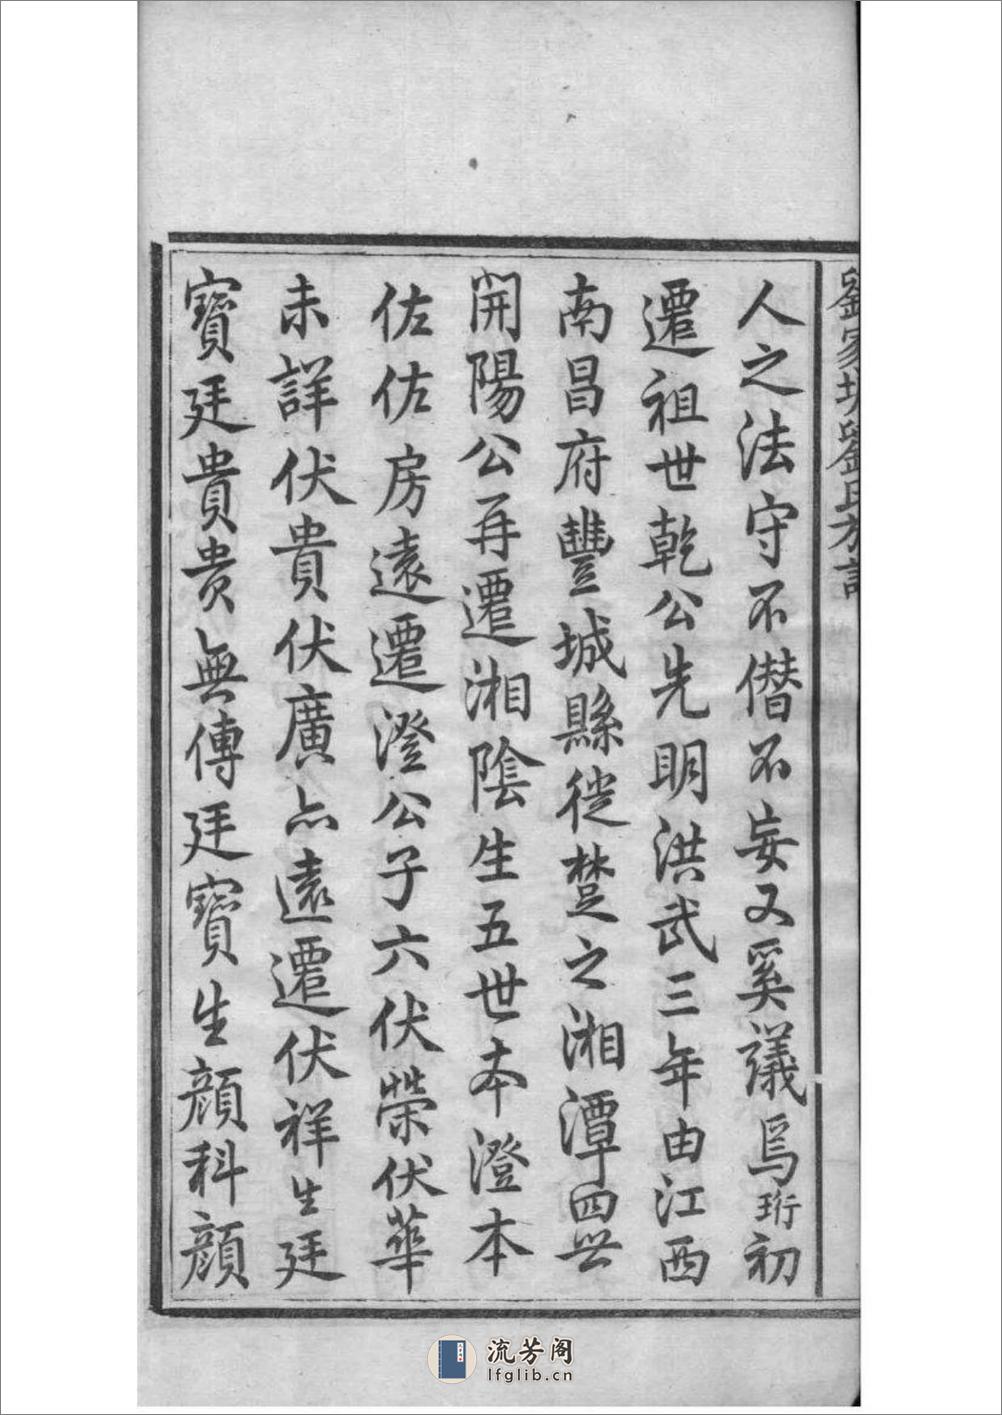 劉家坊劉氏方譜
人之法守不僭不妄又奚議焉珩初
遷祖世乾公先明洪武三年由江西
南昌府豐城縣徙楚之湘潭四世
開陽公再遷湘陰生五世本澄本
佐佐房遠遷澄公子六伏榮伏華
未詳伏貴伏廣亦遠遷伏祥生廷
寶廷貴貴無傳廷寶生顏科顏
流芳阁
lfglib.cn